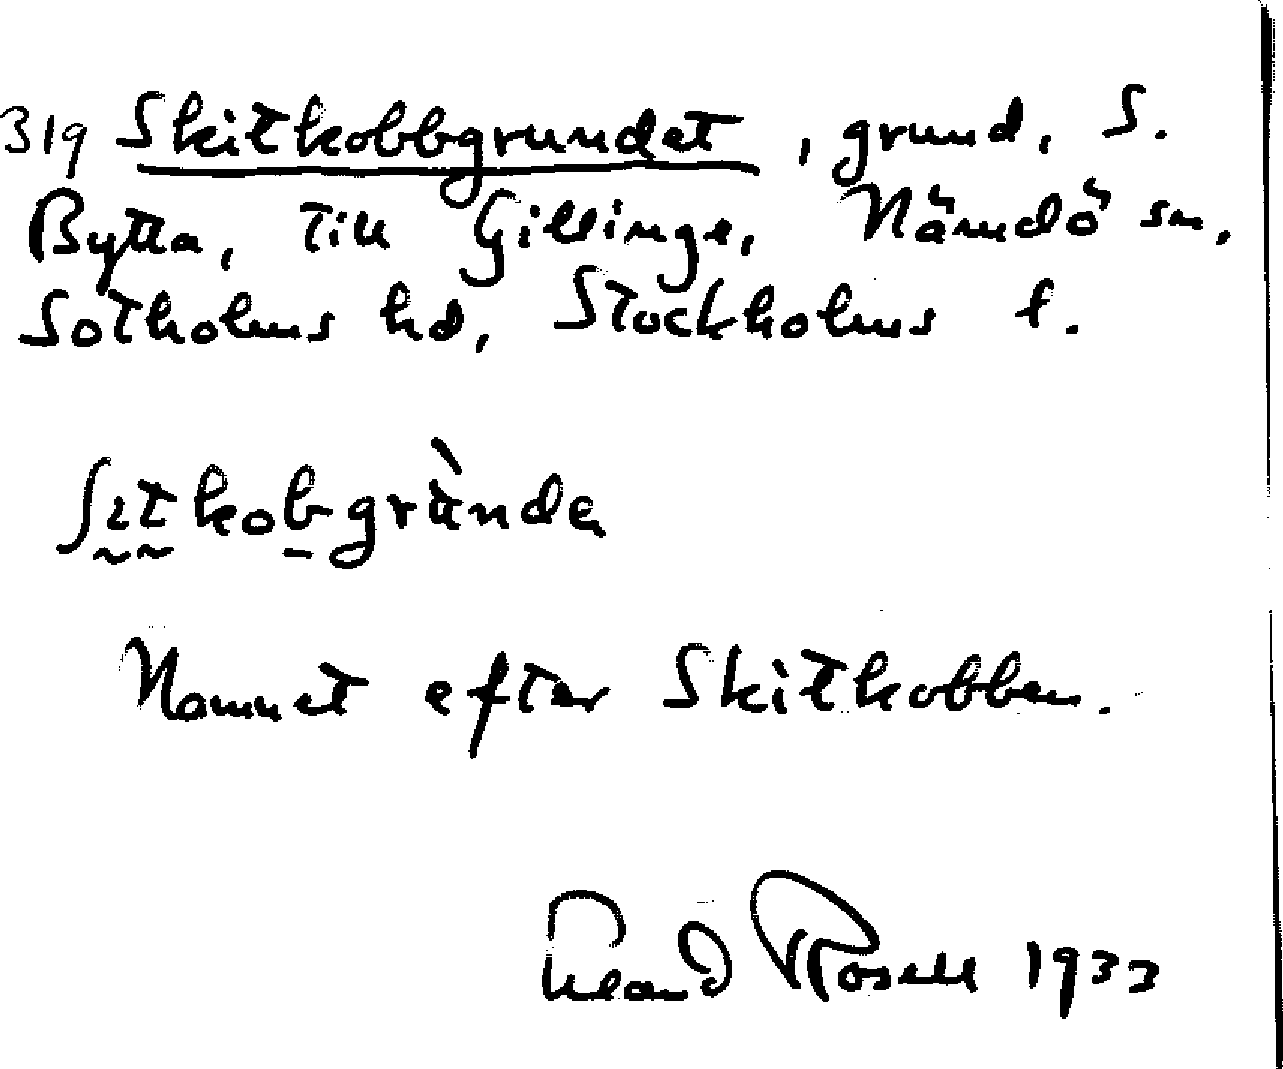 319 Skitkobbgrundet, grund, S.
Bytta, till Gillinge, Nämdö sn,
Sotholms hd, Stockholms l.
Namnet efter Skitkobben.
Rosell 1933